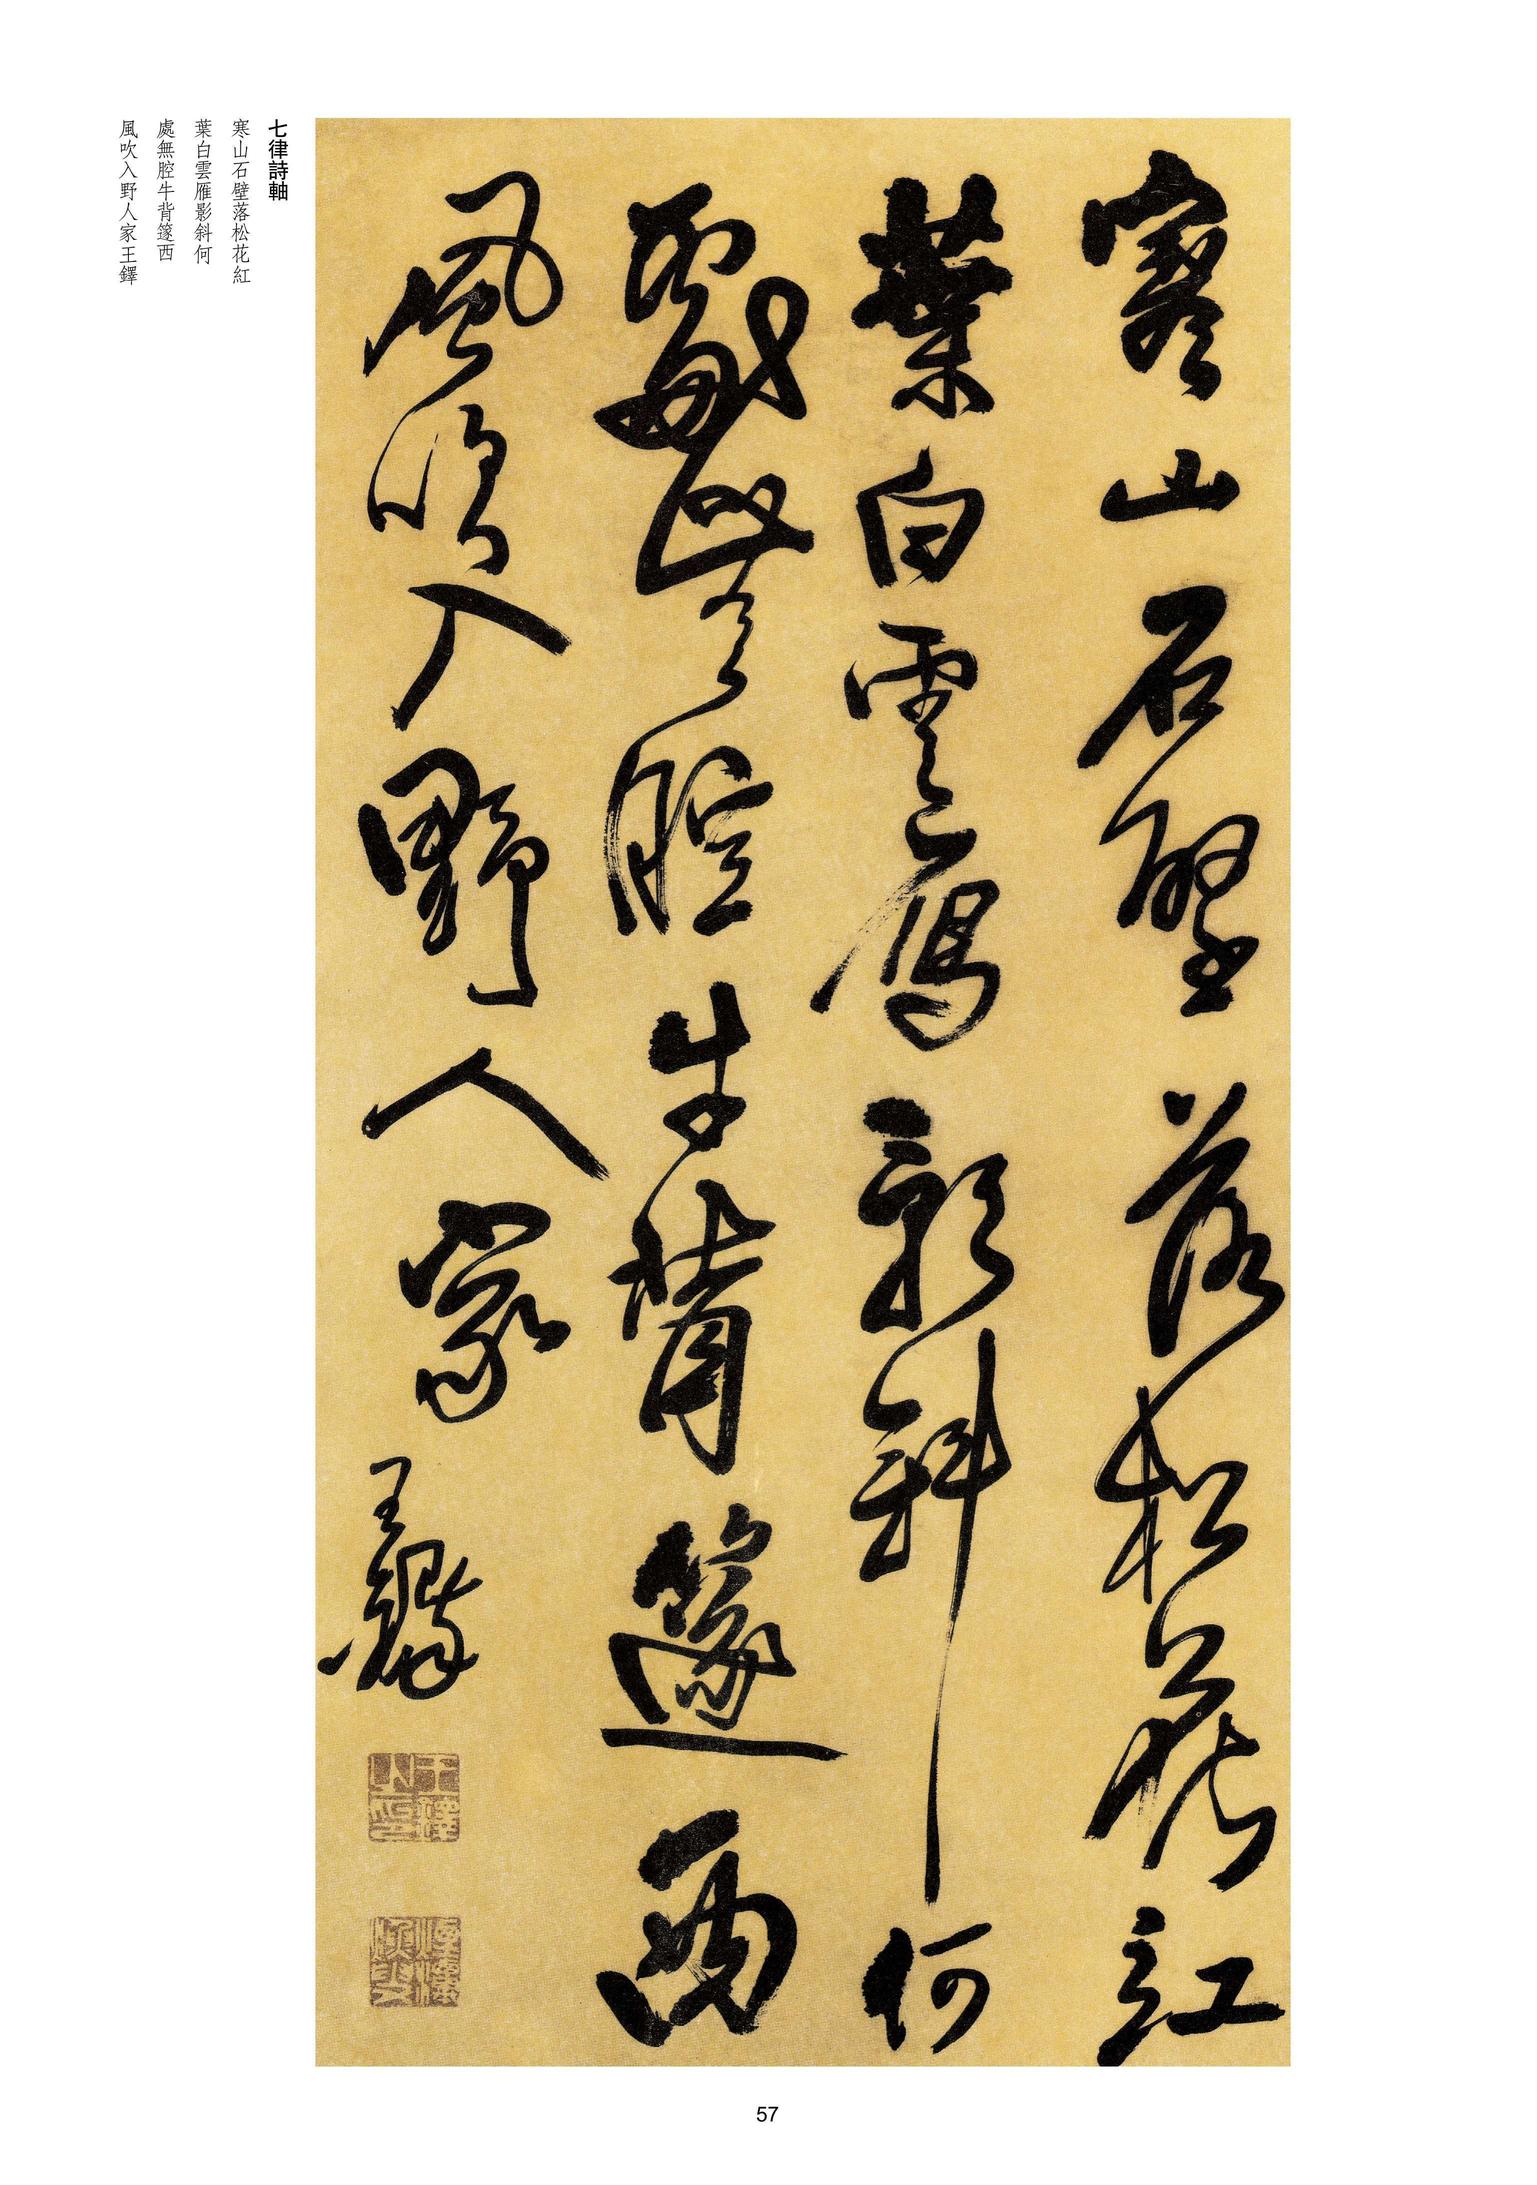 七律詩軸
寒山石壁落松花紅
葉白雲雁影斜何
處無腔牛背篴西
風吹入野人家王鐸
寒山石壁落松花紅
葉白雲雁影斜何
處無腔牛背篴西
風吹入野人家王鐸
王鐸之印
57